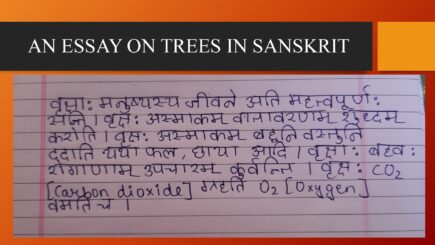 AN ESSAY ON TREES IN SANSKRIT
वृक्षा: मनुष्यस्य जीवने अति महत्त्वपूर्ण:
सन्ति । वृक्ष: अस्माकम वातावरणम शुध्दम
करोति । वृक्ष: अस्माकम बहूनि वस्तुनि
ददाति यथा फल, छाया आदि । वृक्षा: बहव:
रोगाणाम उपचारम कुर्वन्ति । वृक्ष: CO2
[Carbon dioxide] ग्रहति O2 [Oxygen]
वमति च ।